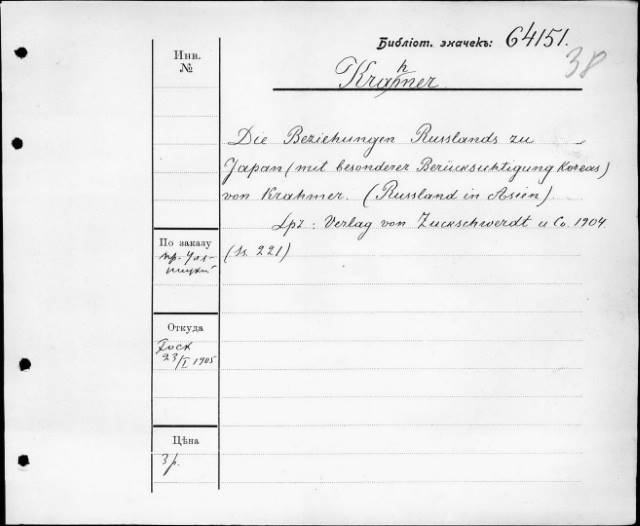 Библіот. значекъ: 64151.
38
Инв.
№
Krahmer
Die Beziehungen Russlands zu
Japan (mit besonderer Berücksichtigung Koreas)
von Krahmer. (Russland in Asien)
Lpz: Verlag von Zuckschwerdt u Co. 1904.
(S. 221)
По заказу
Откуда
Fock
23/I 1905
Цѣна
3 р.